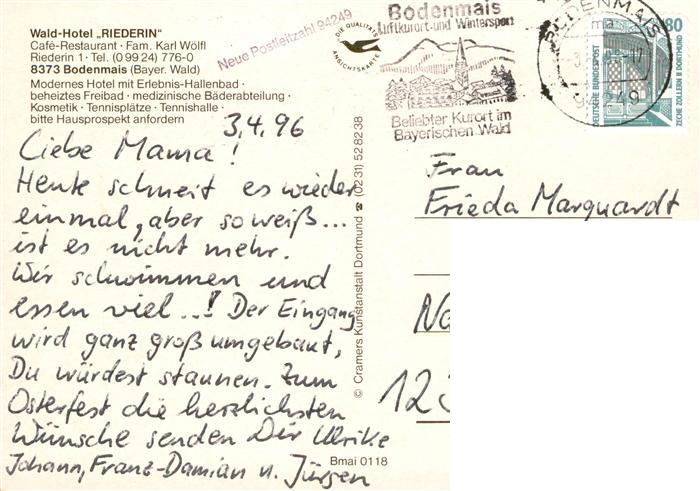 Wald-Hotel „RIEDERIN"
Café-Restaurant · Fam. Karl Wölfl
Riederin 1 · Tel. (0 99 24) 776-0
8373 Bodenmais (Bayer. Wald)
Modernes Hotel mit Erlebnis-Hallenbad
beheiztes Freibad · medizinische Bäderabteilung ·
Kosmetik · Tennisplätze · Tennishalle ·
bitte Hausprospekt anfordern
Neue Postleitzahl 94249
DIE QUALITÄTS
ANSICHTSKARTE
Bodenmais
Luftkurort und Wintersport
Beliebter Kurort im
Bayerischen Wald
BODENMAIS
ma
94249
80
DEUTSCHE BUNDESPOST
ZECHE ZOLLERN II DORTMUND
3.4.96
Liebe Mama!
Heute schneit es wieder
einmal, aber so weiß...
ist es nicht mehr.
Wir schwimmen und
essen viel...! Der Eingang
wird ganz groß umgebaut,
Du würdest staunen. Zum
Osterfest die herzlichsten
Wünsche senden Dir Ulrike
Johann, Franz-Damian u. Jürgen
© Cramers Kunstanstalt Dortmund ☎ (0231) 528238
Bmai 0118
Frau
Frieda Marquardt
Na
12